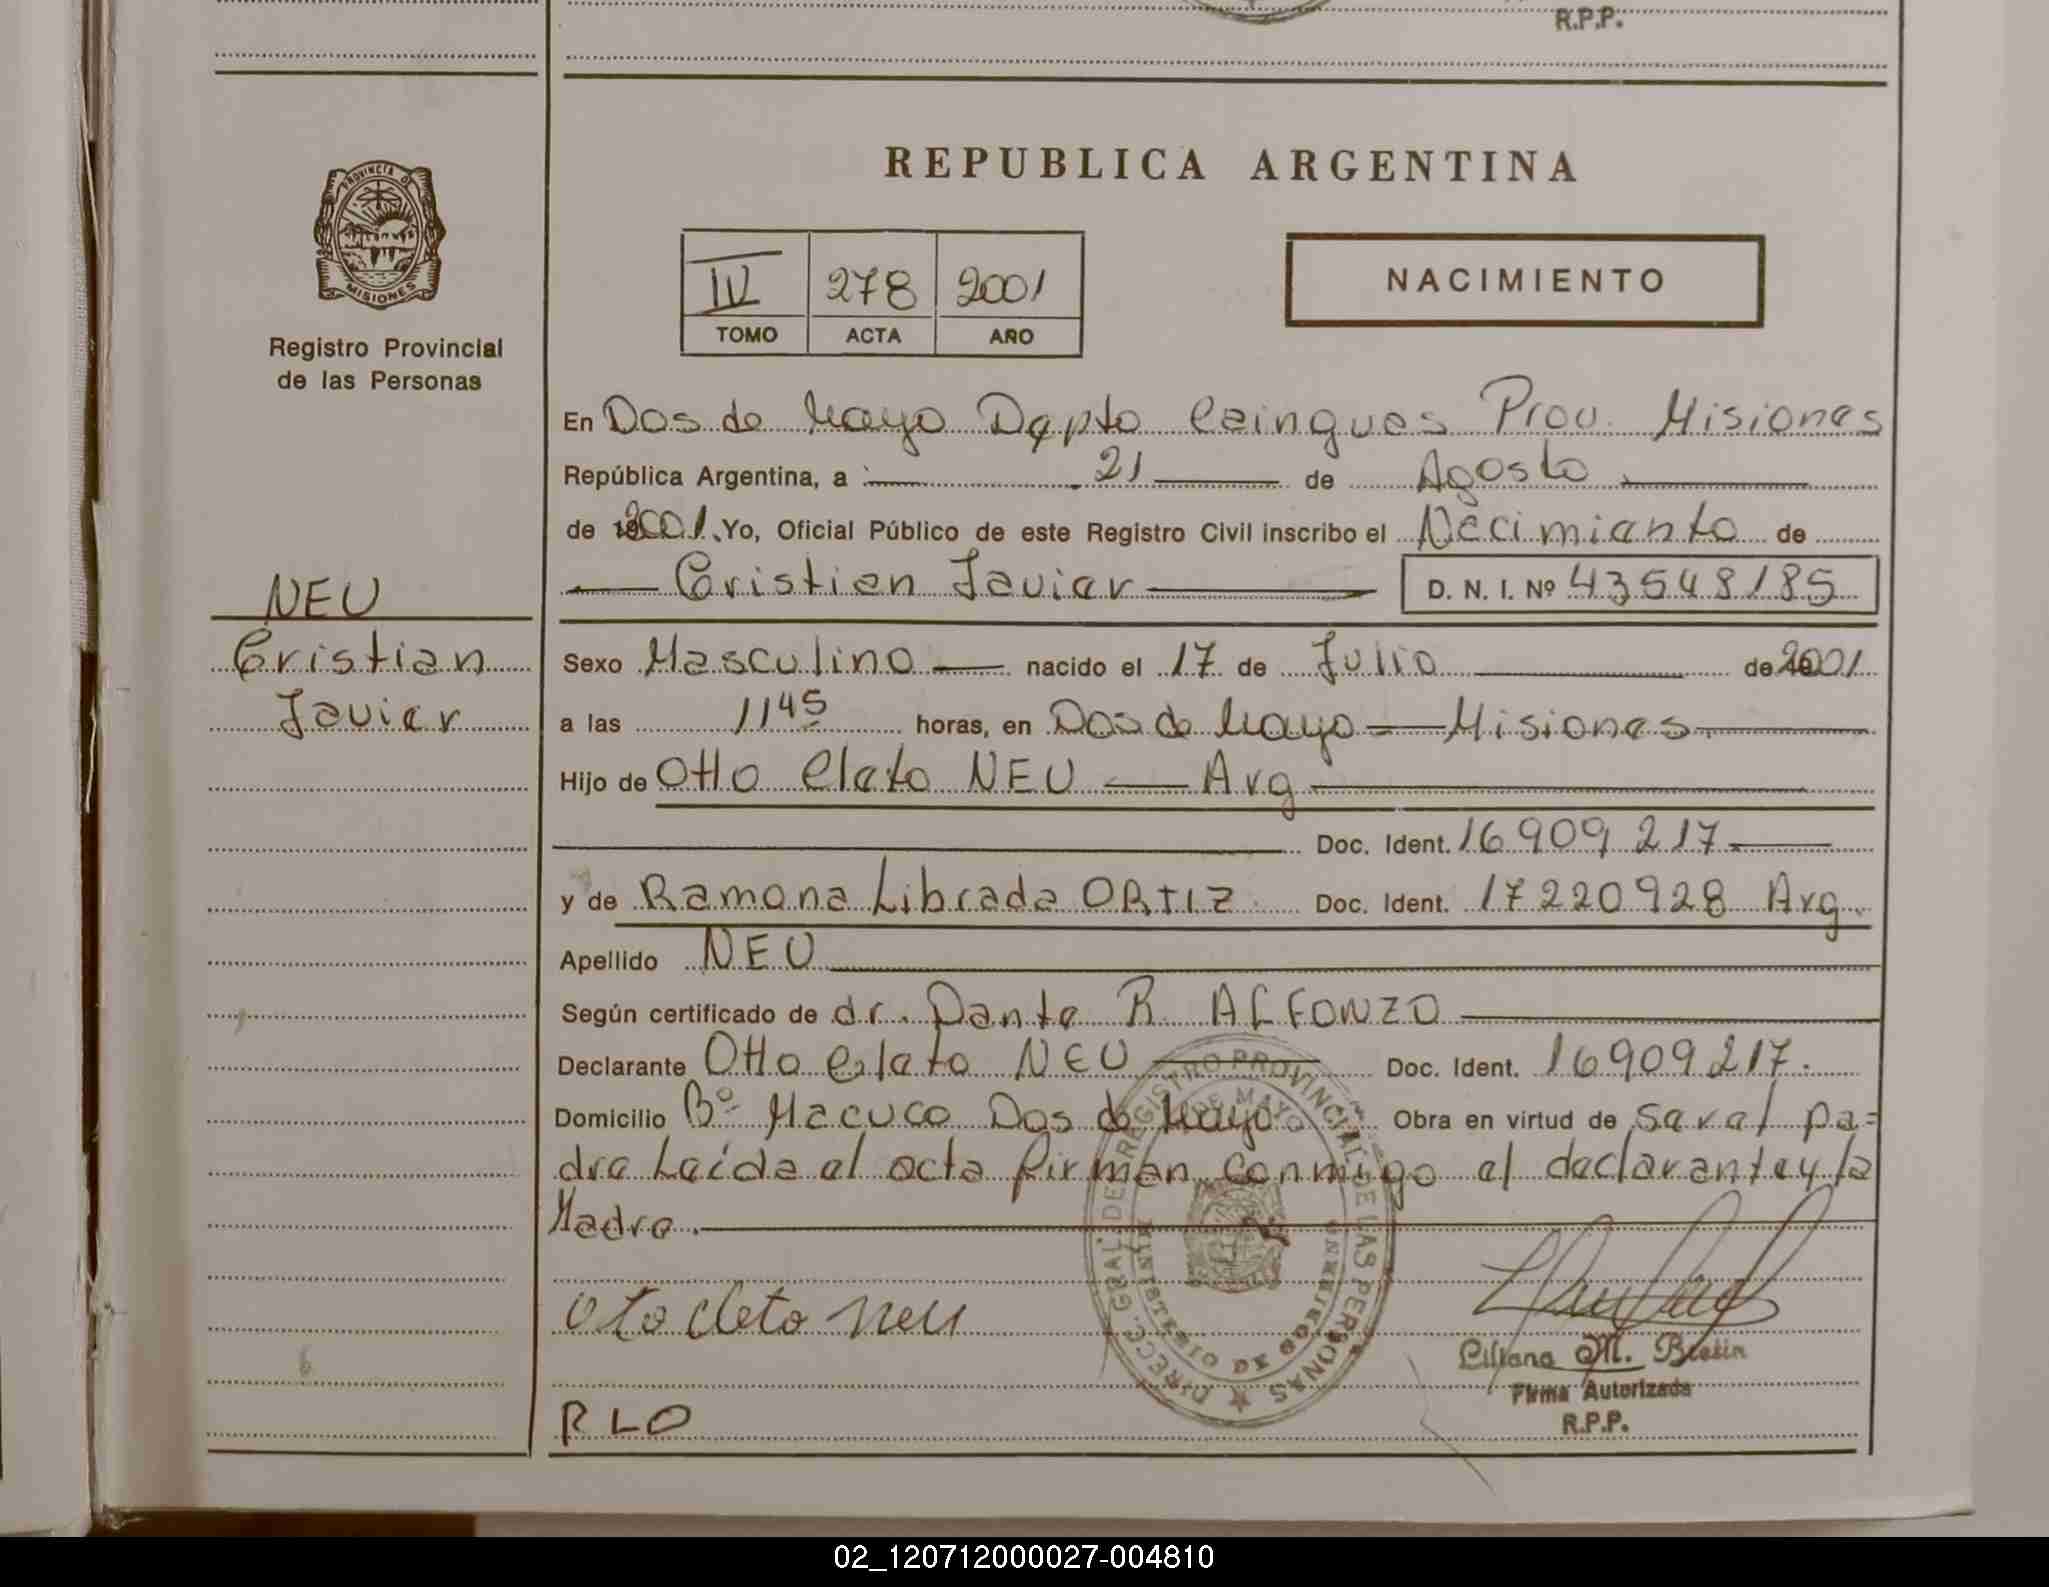 R.P.P.
REPUBLICA ARGENTINA
PROVINCIA DE
MISIONES
Registro Provincial
de las Personas
IV 278 2001
TOMO ACTA AÑO
NACIMIENTO
En Dos de Mayo Depto Caingues Prov. Misiones
República Argentina, a 21 de Agosto
de 2001. Yo, Oficial Público de este Registro Civil inscribo el Necimianto de
Cristian Javier D. N. I. Nº 43548185
NEU
Cristian
Javier
Sexo Masculino nacido el 17 de Julio de 2001
a las 11 45 horas, en Dos de Mayo - Misiones.
Hijo de Otto Cleto NEU - Arg
Doc. Ident. 16909217.
y de Ramona Librada ORTIZ Doc. Ident. 17220928 Arg.
Apellido NEU
Según certificado de dr. Dante R. ALFONZO
Declarante Otto Cleto NEU Doc. Ident. 16909217.
Domicilio Bº Macuco Dos de Mayo Obra en virtud de serel pa=
dre Leída el acta firman conmigo el declarante y la
Madre.
DIRECC. GRAL. DEL REGISTRO PROVINCIAL DE LAS PERSONAS
DE MAYO
MINISTERIO DE GOBIERNO
Oto cleto neu
Liliana M.
Firma Autorizada
R.P.P.
RLO
02_120712000027-004810